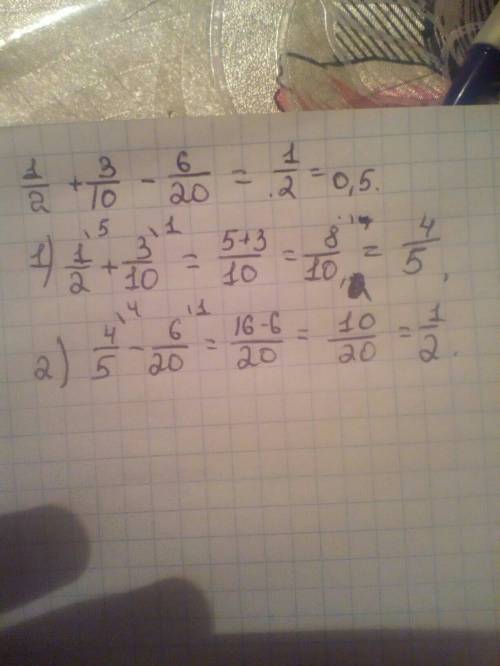 1/2 + 3/10 - 6/20 = 1/2 = 0,5.
1) 1/2 \5 + 3/10 \1 = 5+3/10 = 8/10 = 4/5,
2) 4/5 \4 - 6/20 \1 = 16-6/20 = 10/20 = 1/2.